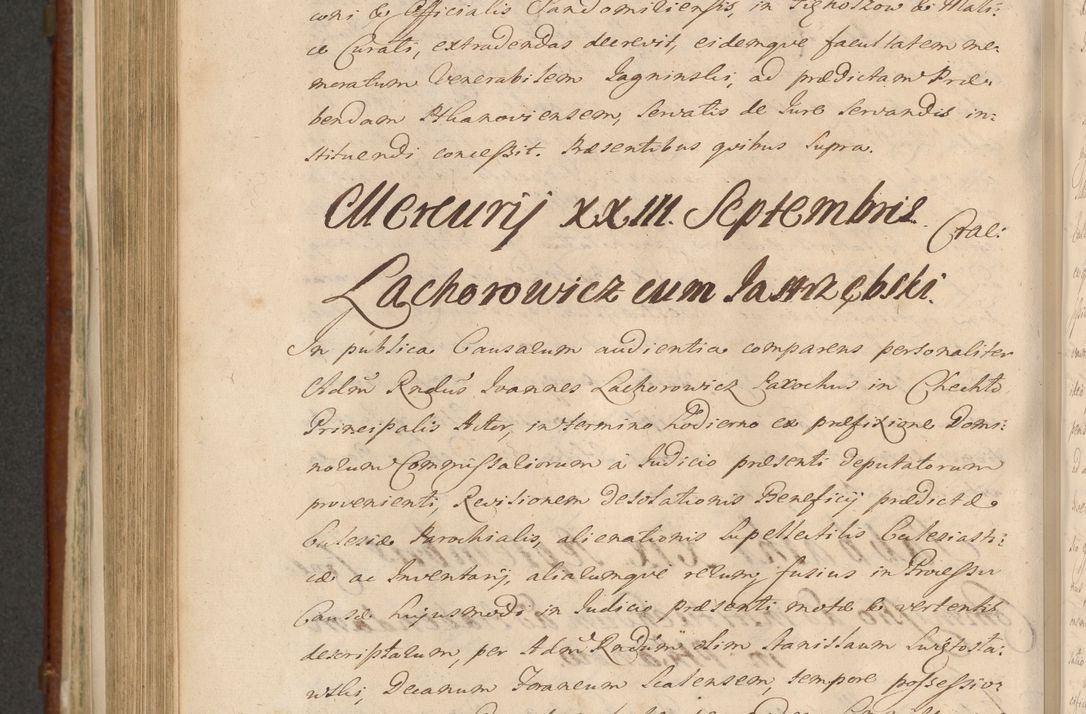 coni & Officialis Sandomiliensis, in
ce Curati, extradendas decrevit, eidemque facultatem me-
moratum Venerabilem Jagninski, ad prædictam Præ-
bendam Ilkanoviensem, servatis de Jure servandis in-
stituendi concessit. Præsentibus quibus supra.
Mercurij XXIII. Septembris Crae:
Lachorowicz cum Jastrzębski.
In publica Causarum audientia comparens personaliter
Adm̃ Rndũs Joannes Lachorowicz Parochus in Chechło
Principalis Actor, in termino hodierno ex præfixione Domi-
norum Commissariorum à Judicio præsenti deputatorum
provenienti, Revisionem desolationis Beneficij prædictæ
Ecclesiæ Parochialis, alienationis supellectilis Ecclesiasti-
cæ ac Inventarij, aliarumque rerum, fusius in Processu
Causæ hujusmodi in Judicio præsenti motæ & vertentis
descriptarum, per Adm̃ Rndum olim Stanislaum
wski, Decanum Foraneum Scalensem, tempore possessio-